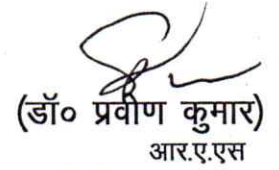 (डॉ० प्रवीण कुमार)
आर.ए.एस